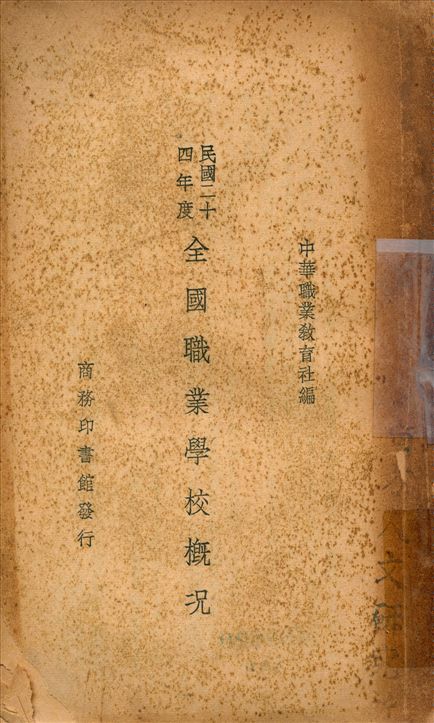 中華職業敎育社編
民國二十
四年度
全國職業學校槪况
商務印書館發行
文